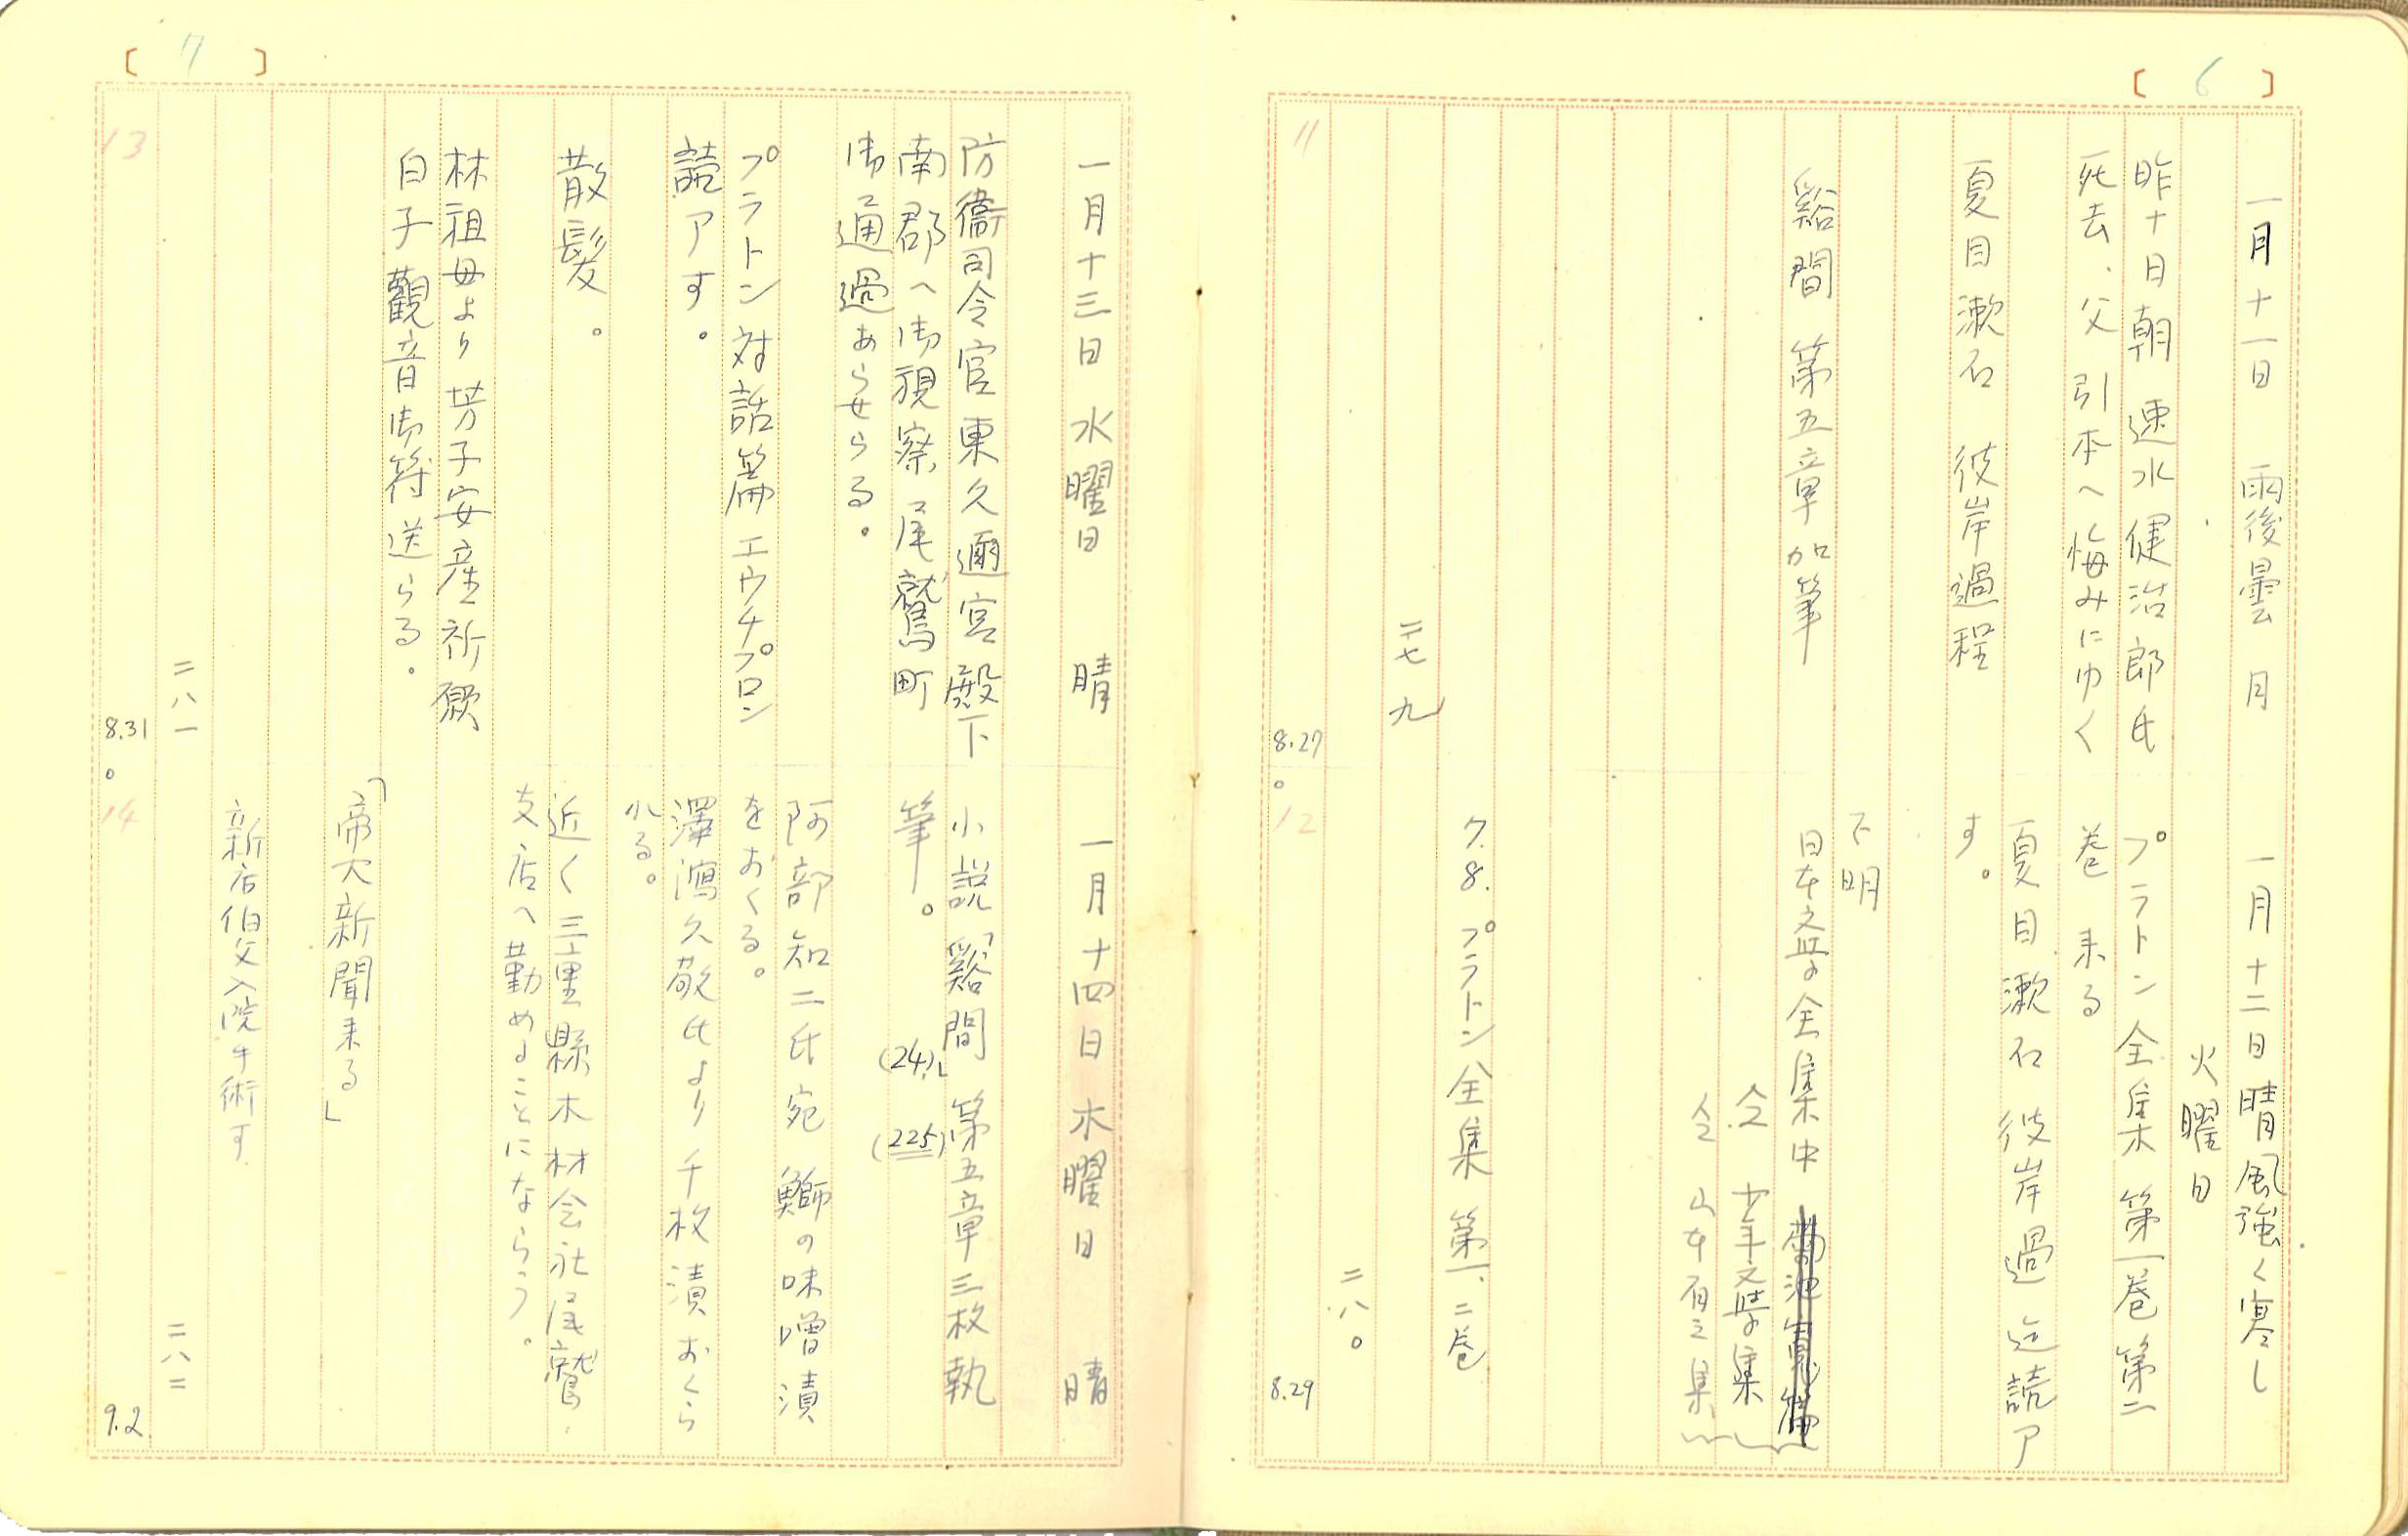 〔 6 〕
一月十一日 雨後曇 月
昨十日朝 速水健治郎氏
死去、父 引本へ悔みにゆく
夏目漱石 彼岸過程
谿間 第五章加筆
二七九
11
8.27
一月十二日 晴 風強く寒し
火曜日
プラトン全集 第一巻 第二
巻 来る
夏目漱石 彼岸過迄読ア
す。
不明
日本文学全集中
仝 少年文学集
仝 山本有三集
7.8. プラトン全集 第一、二巻
二八〇
12
8.29
〔 7 〕
一月十三日 水曜日 晴
防衞司令官東久邇宮殿下
南郡へ御視察尾鷲町
御通過あらせらる。
プラトン対話篇 エウチプロン
読アす。
散髪。
林祖母より芳子安産祈願
白子觀音御符送らる。
二八一
13
8.31
一月十四日 木曜日 晴
小説「谿間」第五章三枚執
筆。 (24) (225)
阿部知二氏宛 鰤の味噌漬
をおくる。
澤瀉久敬氏より千枚漬おくら
れる。
近く三重縣木材会社尾鷲
支店へ勤めることにならう。
「帝大新聞来る」
新店伯父入院手術す
二八二
14
9.2